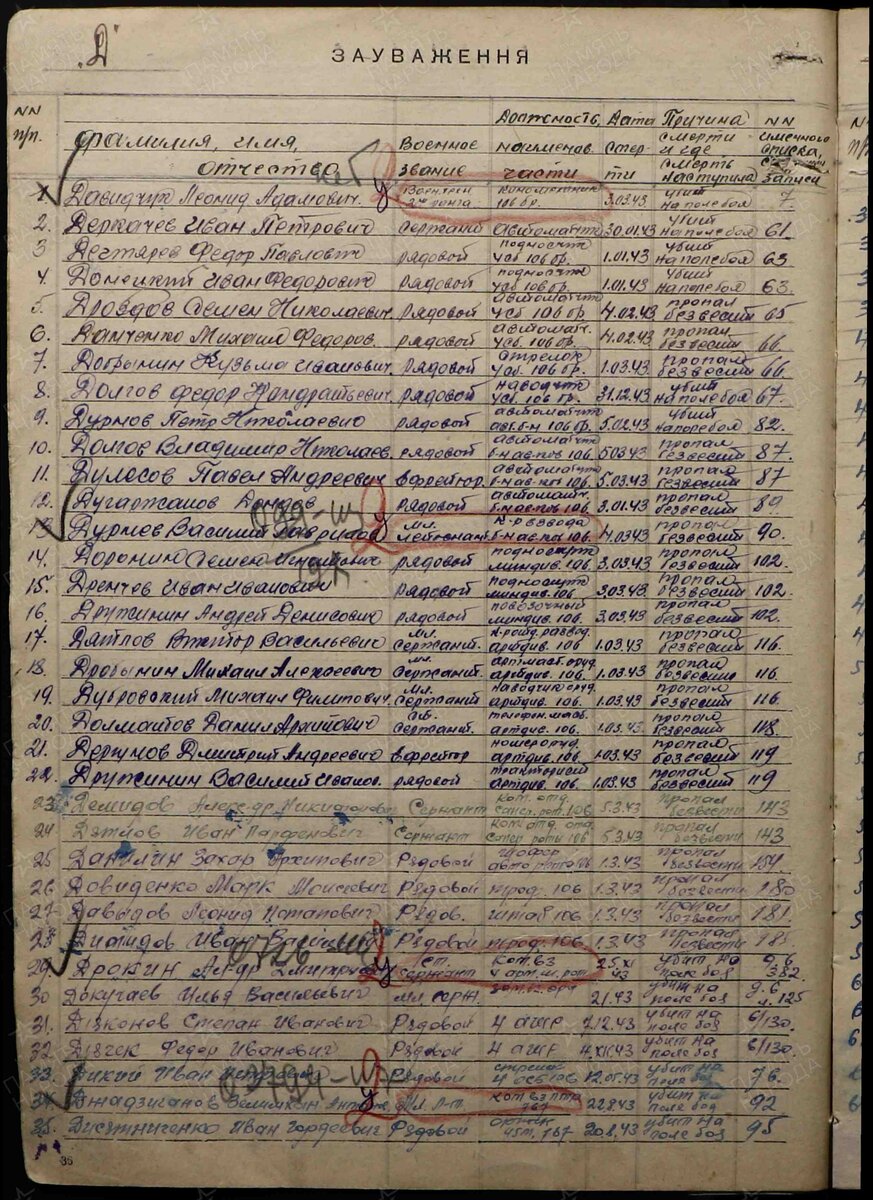 "Д"
ЗАУВАЖЕННЯ
NN п/п. Фамилия, имя, отчество Военное звание Должность, наименов. части Дата смерти Причина смерти и где смерть наступила NN именного списка, записи
1. Давидчук Леонид Адамович. Воентехн 2го ранга киномеханик 106 бр. 3.03.43 убит на поле боя 7.
2. Деркачев Иван Петрович сержант автоматчик 30.01.43 убит на поле боя 61.
3 Дегтярев Федор Павлович рядовой подносчик усб 106 бр. 1.01.43 убит на поле боя 63
4. Донецкий Иван Федорович рядовой подносчик усб 106 бр. 1.01.43 убит на поле боя 63.
5. Дроздов Семен Николаевич рядовой автоматчик усб 106 бр. 4.02.43 пропал без вести 65
6. Данченко Михаил Федоров. рядовой автоматч. усб. 106 бр. 4.02.43 пропал без вести 66
7. Добрынин Кузьма Иванович. рядовой стрелок усб. 106 бр. 1.03.43 пропал без вести 66.
8. Долгов Федор Кондратьевич рядовой наводчик усб. 106 бр. 31.12.43 убит на поле боя 67.
9. Дурнов Петр Николаевич рядовой автоматчик авт. б-н 106 бр. 5.02.43 убит на поле боя 82.
10. Долгов Владимир Николаев. рядовой автоматчик 106 5.03.43 пропал без вести 87.
11. Павел Андреевич ефрейтор. автоматчик 106 5.03.43 пропал без вести 87
12. Дугаржапов рядовой автоматч. 106 3.01.43 пропал без вести 89
13. Дурнев Василий мл. лейтенант к-р взвода 106. 4.03.43 пропал без вести 90.
14. Семен рядовой подносчик миндив. 106 3.03.43 пропал без вести 102.
15. Дремчев Иван Иванович рядовой подносчик миндив. 106 3.03.43 пропал без вести 102.
16 Дружинин Андрей Денисович рядовой повозочный миндив. 106. 3.03.43 пропал без вести 102.
17. Дятлов Виктор Васильевич мл. сержант. артдив. 106. 1.03.43 пропал без вести 116
18. Дробынин Михаил Алексеевич мл. сержант. артдив. 106. 1.03.43 пропал без вести 116.
19. Дубровский Михаил Филиппович. мл. сержант наводчик оруд. артдив. 106. 1.03.43 пропал без вести 116.
20. Долматов Данил Архипович ст. сержант. артдив. 106. 1.03.43 пропал без вести 118.
21. Дергунов Дмитрий Андреевич ефрейтор артдив. 106 1.03.43 пропал без вести 119
22. Дружинин Василий Иванов. рядовой тракторист артдив. 106. 1.03.43 пропал без вести 119
23. Демидов Александр Никифорович Сержант ком. отд. сапер. рот. 106 5.3.43 пропал безвести 143
24 Дятлов Иван Парфенович Сержант ком отд. сапер роты 106 5.3.43 пропал безвести 143
25 Данилин Захар Архипович Рядовой шофер авто рота 106 1.3.43 пропал безвести 154.
26. Довиденко Марк Моисеевич Рядовой 106 1.3.43 пропал безвести 180
27 Давыдов Леонид Потапович Рядов. штаб 106 1.3.43 пропал безвести 181.
28 Диомидов Иван Рядовой 106. 1.3.43 пропал безвести
29 Дрокин ст. сержант ком. вз 25.XI 43 убит на поле боя д. 6 332.
30 Докучаев Илья Васильевич мл. серж. 2.1.43 убит на поле боя д. 6 л. 125
31. Дьяконов Степан Иванович Рядовой 4 АШР 7.12.43 убит на поле боя 6/130.
32. Дьячек Федор Иванович Рядовой 4 АШР 4.XII.43 убит на поле боя 6/130.
33. Дикий Иван Рядовой убит на поле боя 76.
34. Мл. л-т. ком вз ПТР 767 22.8.43 убит на поле боя 92
35. Десятниченко Иван Гордеевич Рядовой 767 20.8.43 убит на поле боя 95
36
ПАМЯТЬ НАРОДА